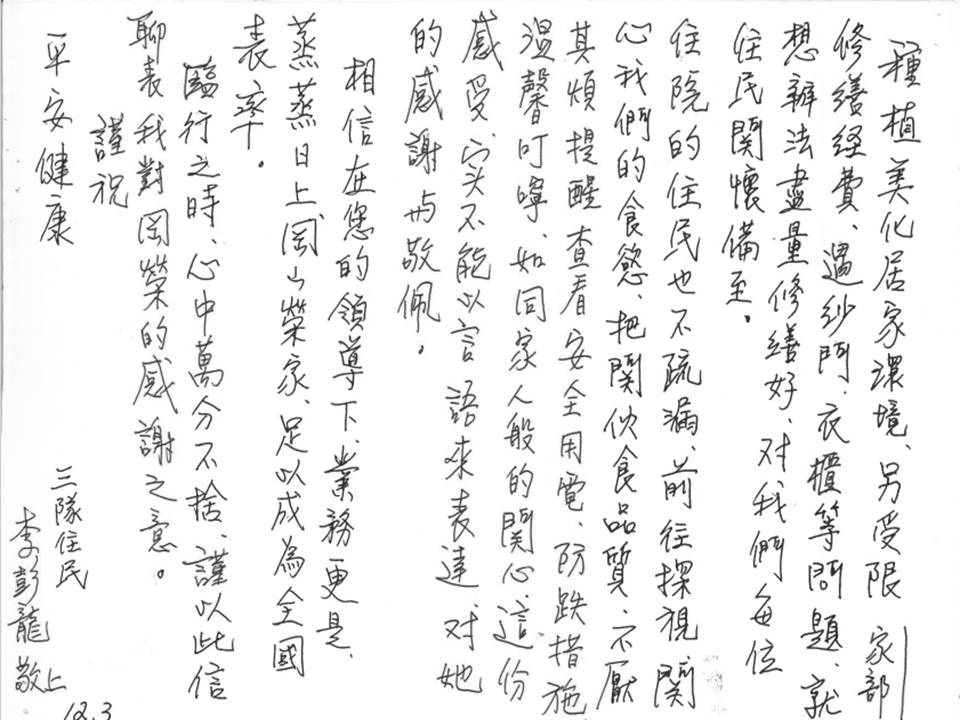 種植美化居家環境、另受限 家部
修繕経費、遇紗門、衣櫃等問題、就
想辦法盡量修繕好、对我們每位
住民関懷備至。
住院的住民也不疏漏、前往探視関
心我們的食慾、把関伙食品質、不厭
其煩提醒查看安全用電、防跌措施
温馨叮嚀、如同家人般的関心、這份
感受、实不能以言語來表達、对她
的感謝与敬佩。
相信在您的領導下、業務更是、
蒸蒸日上岡山榮家、足以成為全國
表率。
臨行之時、心中萬分不捨、謹以此信
聊表我對岡榮的感謝之意。
謹祝
平安健康
三隊住民
李彭龍 敬上
12.3